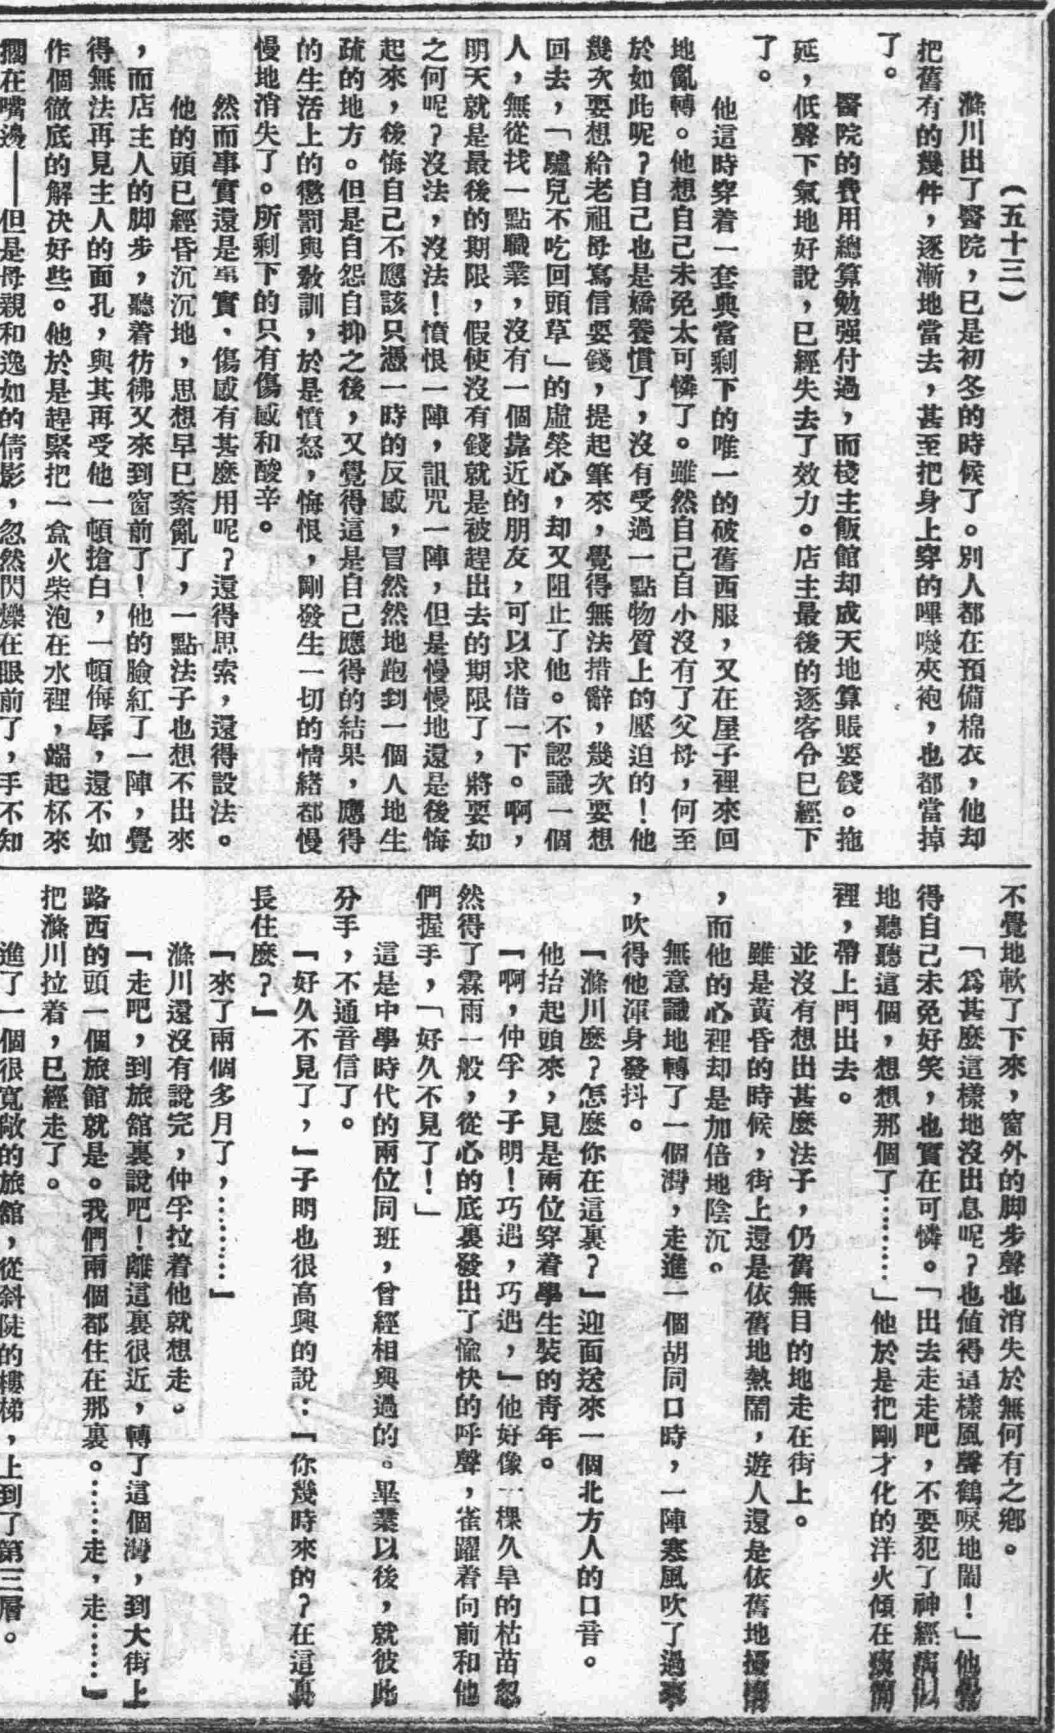 （五十三）
滌川出了醫院，已是初冬的時候了。別人都在預備棉衣，他却
把舊有的幾件，逐漸地當去，甚至把身上穿的嗶嘰夾袍，也都當掉
了。
醫院的費用總算勉强付過，而棧主飯館却成天地算賬要錢。拖
延，低聲下氣地好說，已經失去了效力。店主最後的逐客令已經下
了。
他這時穿着一套典當剩下的唯一的破舊西服，又在屋子裡來回
地亂轉。他想自己未免太可憐了。雖然自己自小沒有了父母，何至
於如此呢？自己也是嬌養慣了，沒有受過一點物質上的壓迫的！他
幾次要想給老祖母寫信要錢，提起筆來，覺得無法措辭，幾次要想
回去，「驢兒不吃回頭草」的虛榮心，却又阻止了他。不認識一個
人，無從找一點職業，沒有一個靠近的朋友，可以求借一下。啊，
明天就是最後的期限，假使沒有錢就是被趕出去的期限了，將要如
之何呢？沒法，沒法！憤恨一陣，詛咒一陣，但是慢慢地還是後悔
起來，後悔自己不應該只憑一時的反感，冒然然地跑到一個人地生
疏的地方。但是自怨自抑之後，又覺得這是自己應得的結果，應得
的生活上的懲罰與敎訓，於是憤怒，悔恨，剛發生一切的情緒都慢
慢地消失了。所剩下的只有傷感和酸辛。
然而事實還是事實，傷感有甚麼用呢？還得思索，還得設法。
他的頭已經昏沉沉地，思想早已紊亂了，一點法子也想不出來
，而店主人的脚步，聽着彷彿又來到窗前了！他的臉紅了一陣，覺
得無法再見主人的面孔，與其再受他一頓搶白，一頓侮辱，還不如
作個徹底的解决好些。他於是趕緊把一盒火柴泡在水裡，端起杯來
擱在嘴邊——但是母親和逸如的倩影，忽然閃爍在眼前了，手不知
不覺地軟了下來，窗外的脚步聲也消失於無何有之鄉。
「爲甚麼這樣地沒出息呢？也值得這樣風聲鶴唳地鬧！」他覺
得自己未免好笑，也實在可憐。「出去走走吧，不要犯了神經病似
地聽聽這個，想想那個了………」他於是把剛才化的洋火傾在痰筒
裡，帶上門出去。
並沒有想出甚麼法子，仍舊無目的地走在街上。
雖是黃昏的時候，街上還是依舊地熱鬧，遊人還是依舊地擾攘
，而他的心裡却是加倍地陰沉。
無意識地轉了一個灣，走進一個胡同口時，一陣寒風吹了過來
，吹得他渾身發抖。
『滌川麼？怎麼你在這裏？』迎面送來一個北方人的口音。
他抬起頭來，見是兩位穿着學生裝的青年。
『啊，仲孚，子明！巧遇，巧遇，』他好像一棵久旱的枯苗忽
然得了霖雨一般，從心的底裏發出了愉快的呼聲，雀躍着向前和他
們握手，「好久不見了！」
這是中學時代的兩位同班，曾經相與過的。畢業以後，就彼此
分手，不通音信了。
『好久不見了，』子明也很高興的說：『你幾時來的？在這裏
長住麼？』
『來了兩個多月了，………』
滌川還沒有說完，仲孚拉着他就想走。
『走吧，到旅舘裏說吧！離這裏很近，轉了這個灣，到大街上
路西的頭一個旅館就是。我們兩個都住在那裏。……走，走……』
把滌川拉着，已經走了。
進了一個很寬敞的旅舘，從斜陡的樓梯，上到了第三層。